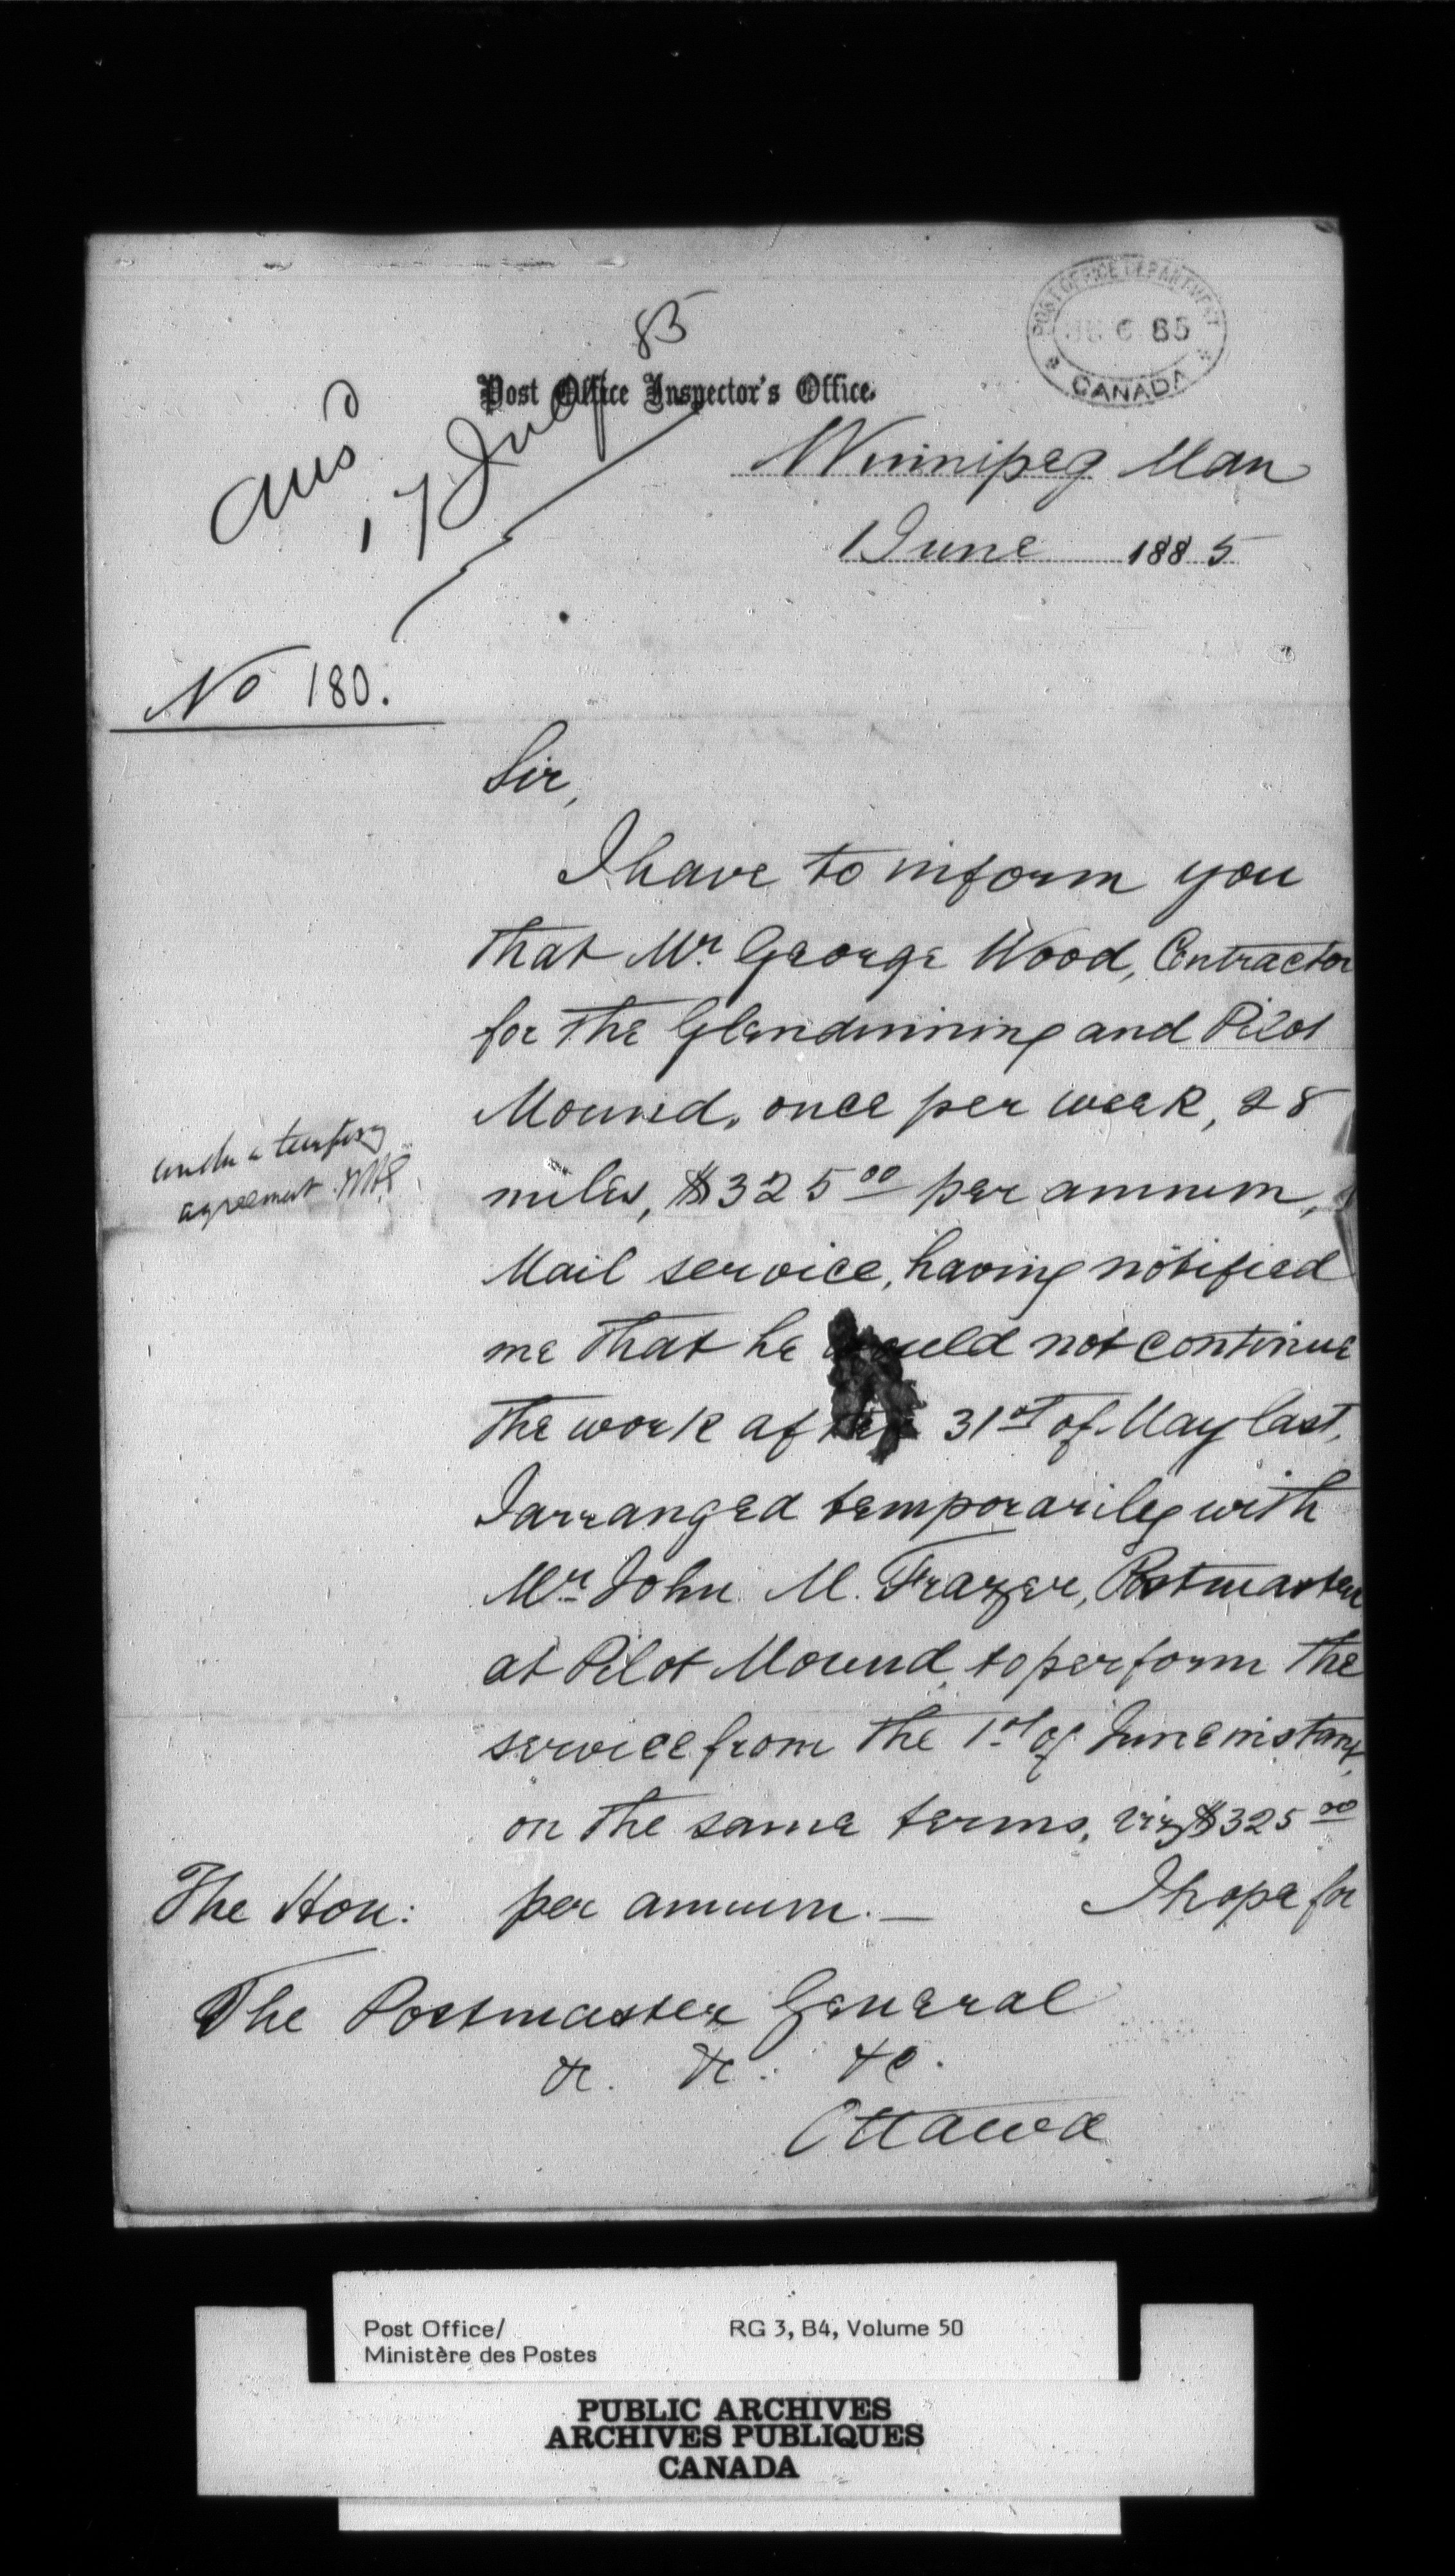 85
Post Office Inspector's Office.
POST OFFICE DEPARTMENT
JU 6 85
CANADA
Ansd
17 July
Winnipeg Man
1 June 1885
No 180.
Sir,
I have to inform you
that Mr. George Wood, Contractor
for the Glendinning and Pilot
Mound, once per week, 28
miles, $325 00 per annum,
Mail service, having notified
me that he would not continue
the work after 31st of May last,
I arranged temporarily with
Mr John M. Frazer, Postmaster
at Pilot Mound, to perform the
service from the 1st of June instant,
on the same terms, viz $325 00
per annum. — I hope for
under a tempory
agreement.
The Hon:
The Postmaster General
&c. &c. &c.
Ottawa
Post Office/
Ministère des Postes
RG 3, B4, Volume 50
PUBLIC ARCHIVES
ARCHIVES PUBLIQUES
CANADA